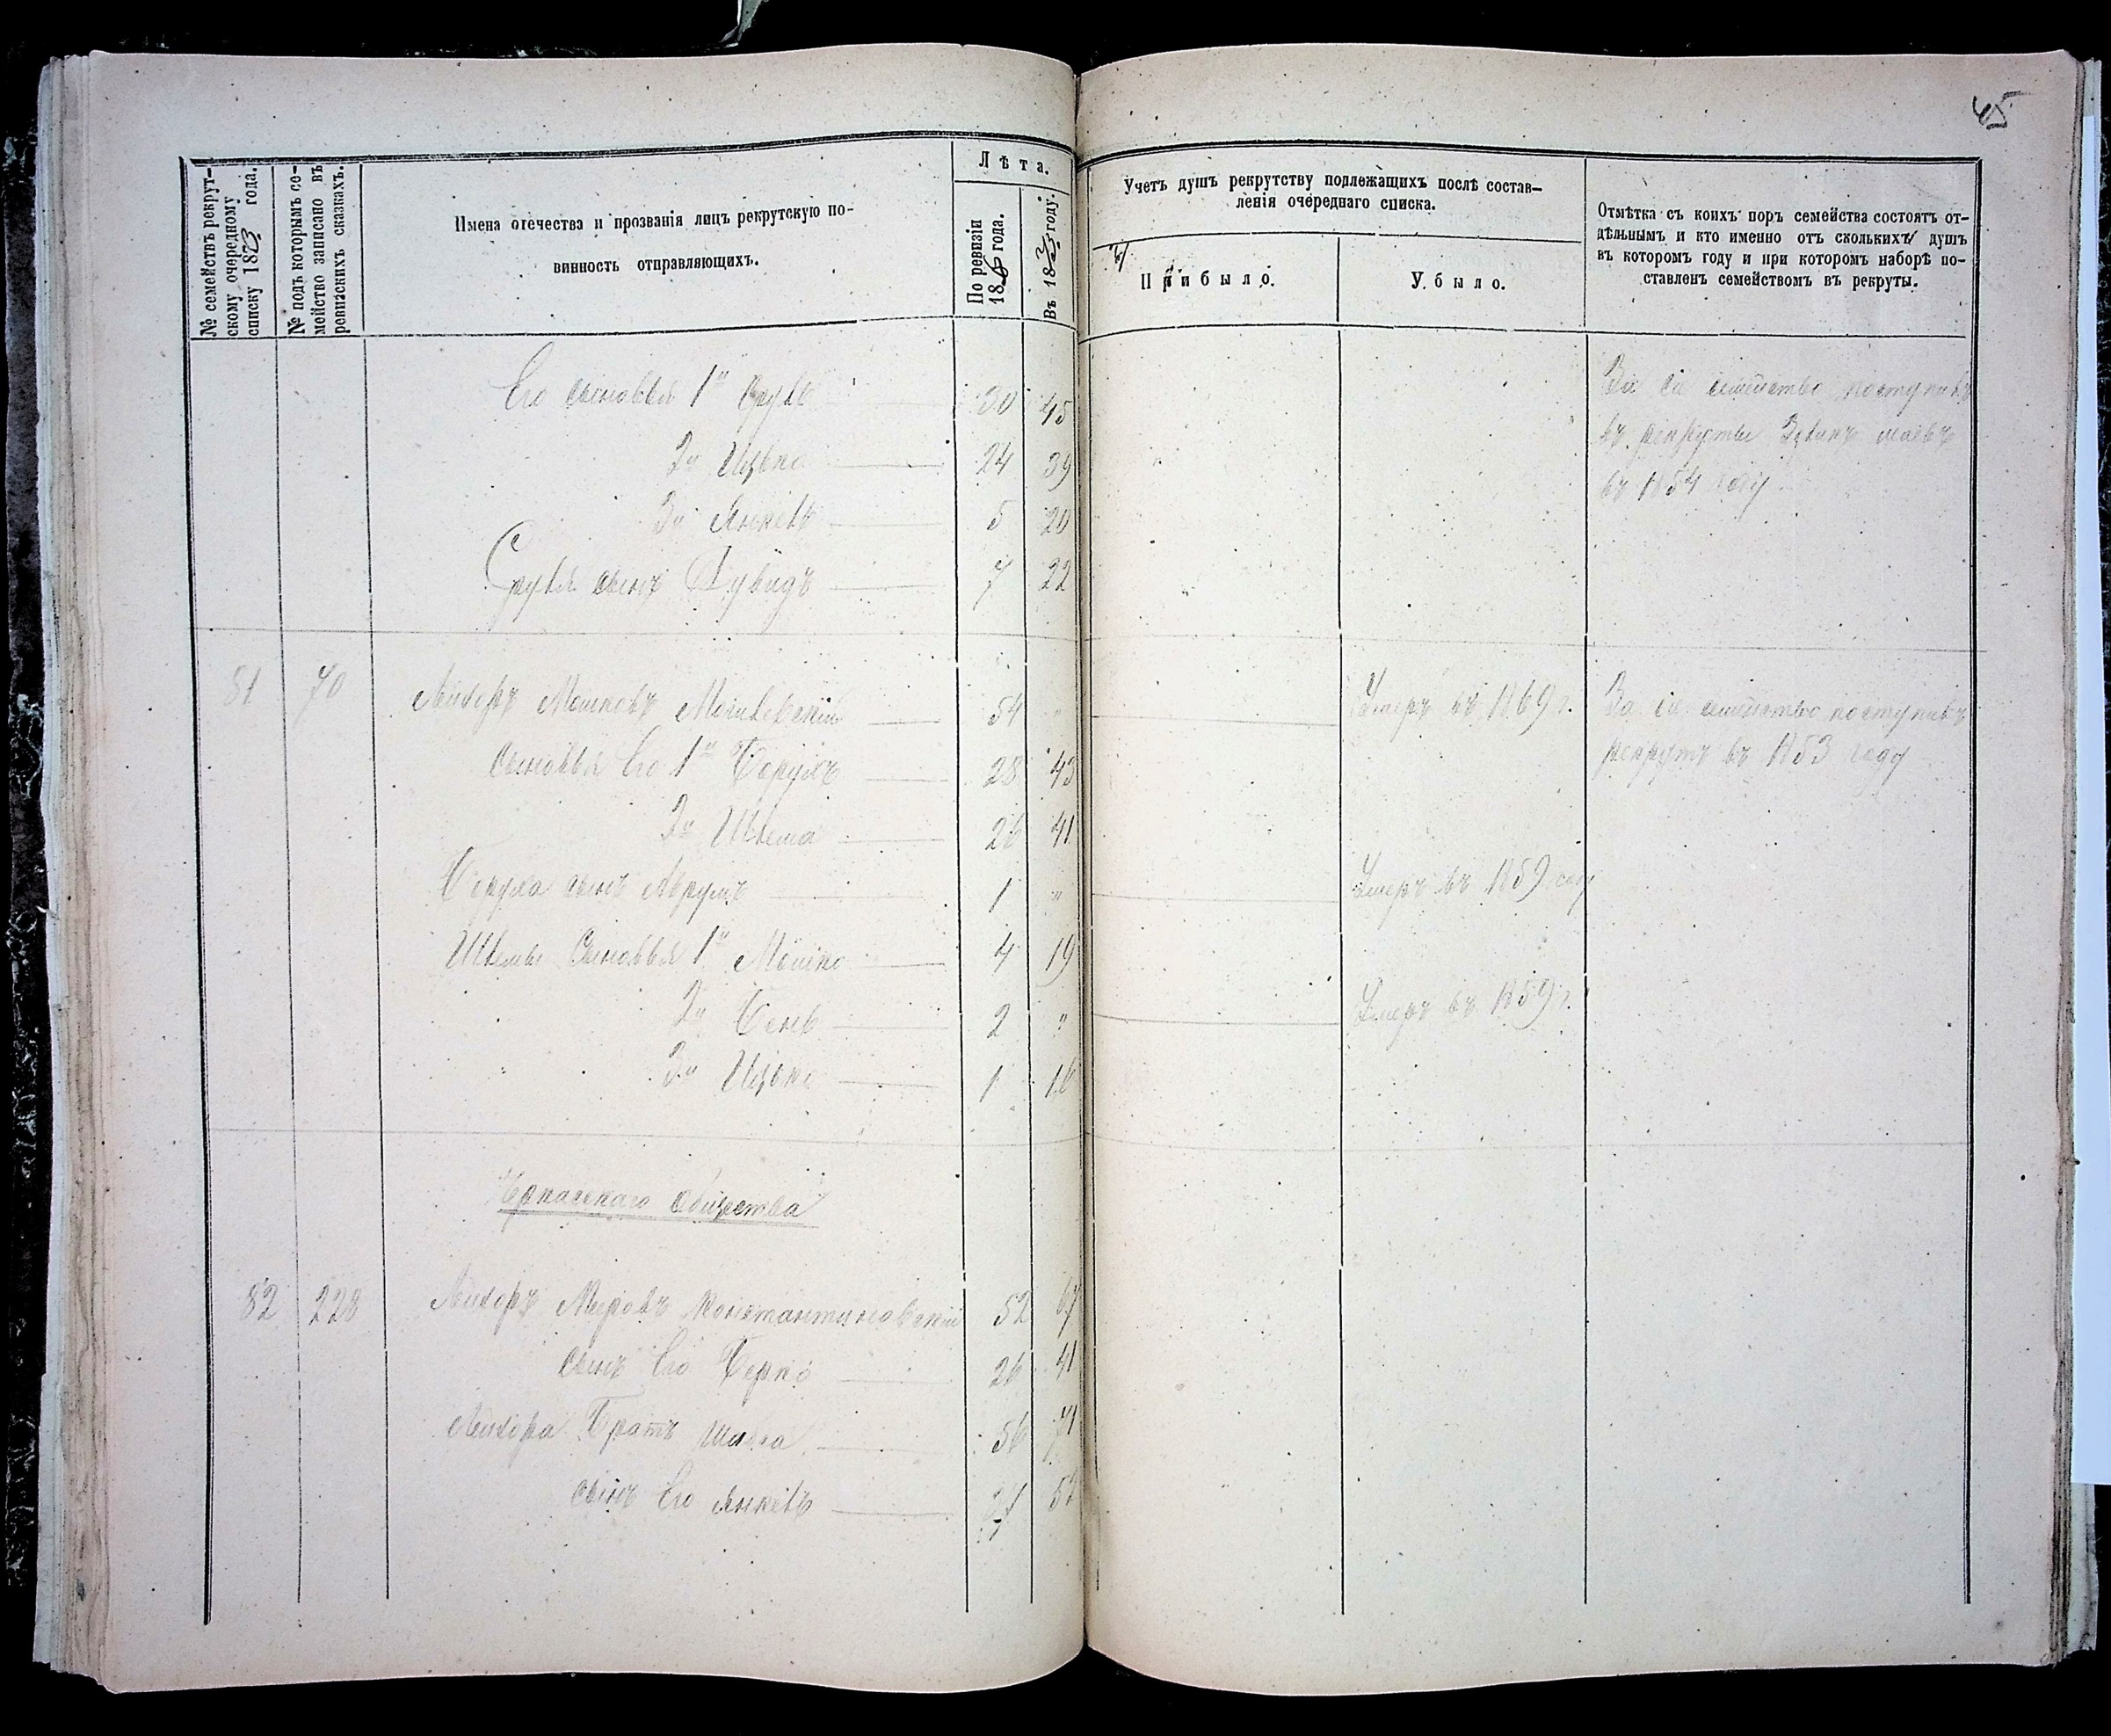 45
№ семействъ рекрут-
скому очередному
списку 1873 года.
№ подъ которымъ се-
мейство записано въ
ревизскихъ сказкахъ.
Имена отечества и прозванія лицъ рекрутскую по-
винность отправляющихъ.
Лѣта.
По ревизіи
18 года.
Въ 1873 году.
Учетъ душъ рекрутству подлежащихъ послѣ состав-
ленія очереднаго списка.
Прибыло.
Убыло.
Отмѣтка съ коихъ поръ семейства состоятъ от-
дѣльнымъ и кто именно отъ сколькихъ душъ
въ которомъ году и при которомъ наборѣ по-
ставленъ семействомъ въ рекруты.
Его сыновья 1й Сруль 30 45
2й Ицько 24 39
3й Янкель 5 20
Сруля сынъ Дувидъ 7 22
За сіе семейство поступилъ
въ рекруты
въ 1854 году
81 70 Лейзоръ Мошковъ 54 " Умеръ въ 1869 г.
Сыновья Его 1й Борухъ 28 43
2й Шлема 26 41
Боруха сынъ Аврумъ 1 " Умеръ въ 1859 году
Шлемы Сыновья 1й Мошко 4 19
2й Бень 2 " Умеръ въ 1859 г.
3й Ицько 1 16
За сіе семейство поступилъ
рекрутъ въ 1853 году
Черкасскаго общества
82 228 Лейзоръ Мееровъ Константиновскій 52 67
сынъ Его Берко 26 41
Лейзора Братъ 56 71
сынъ Его Янкель 52